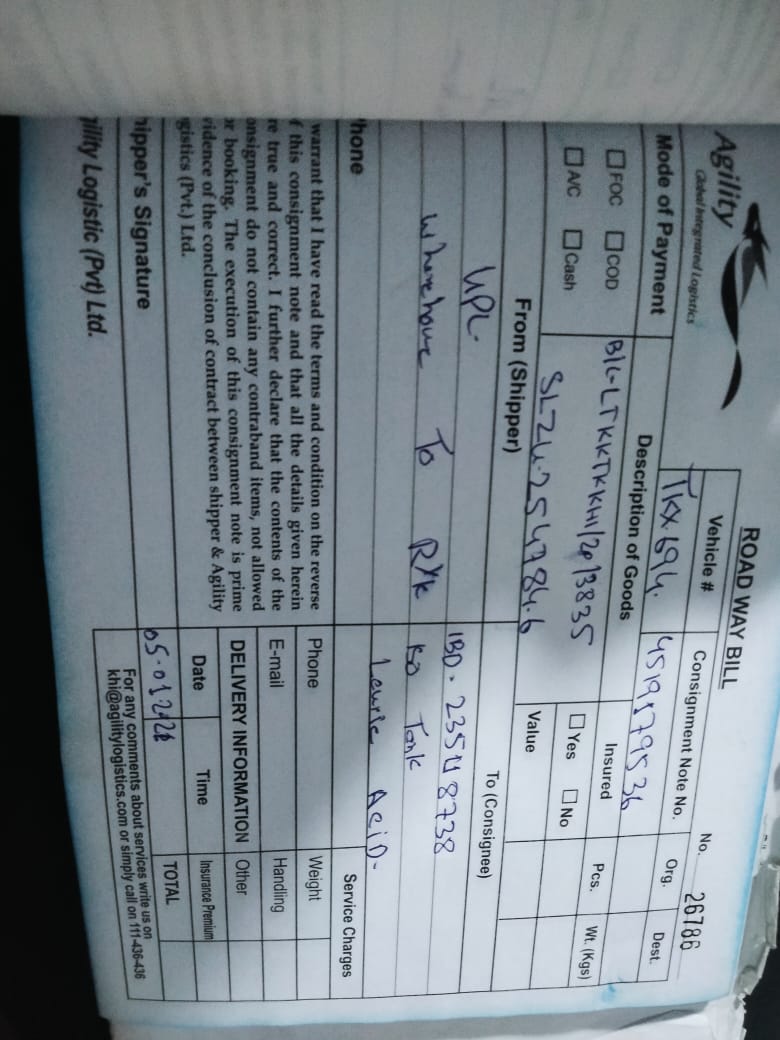 Agility
Global Integrated Logistics
ROAD WAY BILL
No. 26786
Vehicle # Consignment Note No. Org. Dest.
TKX-694. 4519179536
Mode of Payment Description of Goods Insured Pcs. Wt. (Kgs)
☐ FOC ☐ COD B/L-LTKKTKKHI/20/3835 ☐ Yes ☐ No
☐ A/C ☐ Cash SLZU-254784-6 Value
From (Shipper) To (Consignee)
UPL- IBD-
To RYK ISO Tank
Lauric ACiD-
hone Service Charges
warrant that I have read the terms and condition on the reverse
f this consignment note and that all the details given herein
re true and correct. I further declare that the contents of the
onsignment do not contain any contraband items, not allowed
or booking. The execution of this consignment note is prime
vidence of the conclusion of contract between shipper & Agility
gistics (Pvt.) Ltd.
Phone Weight
E-mail Handling
DELIVERY INFORMATION Other
Date Time Insurance Premium
TOTAL
hipper's Signature
For any comments about services write us on
khi@agilitylogistics.com or simply call on 111-436-436
gility Logistic (Pvt) Ltd.